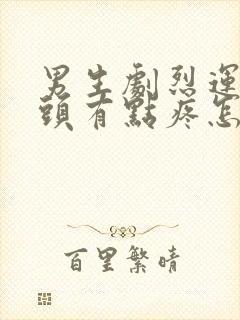 男生劇烈運
頭有點疼怎
百里繁晴